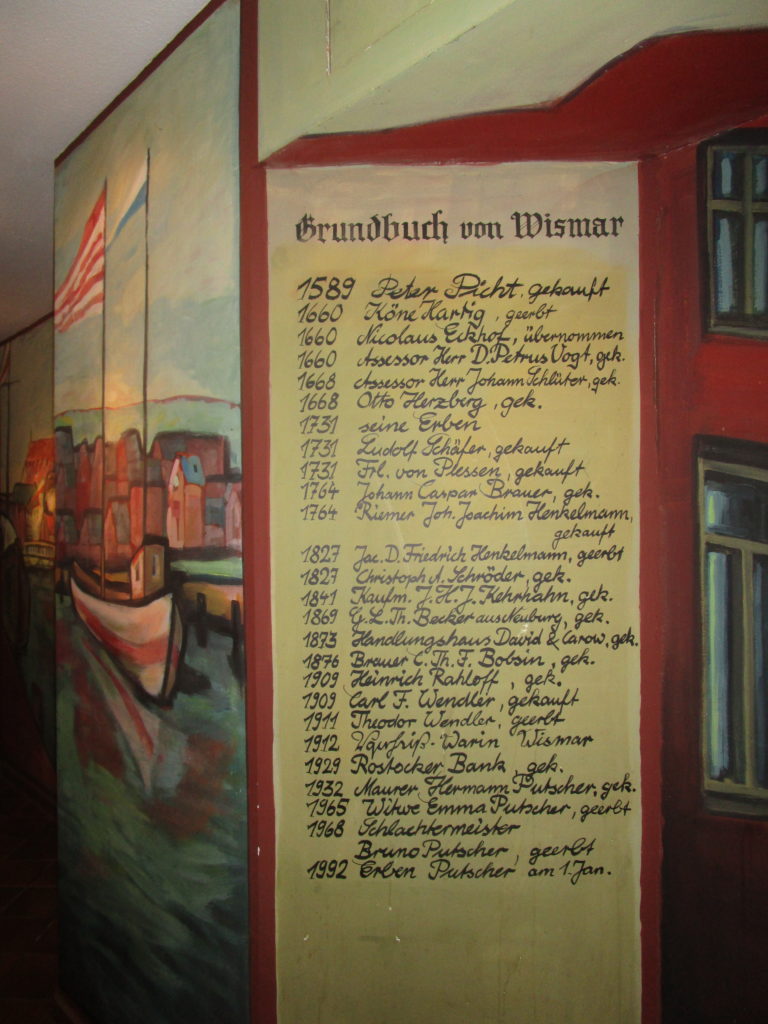 Grundbuch von Wismar
1589 Peter Picht, gekauft
1660 Köne Hartig, geerbt
1660 Nicolaus Eckhof, übernommen
1660 Assessor Herr D. Petrus Vogt, gek.
1668 Assessor Herr Johann Schlüter, gek.
1668 Otto Herzberg, gek.
1731 seine Erben
1731 Ludolf Schäfer, gekauft
1731 Frl. von Plessen, gekauft
1764 Johann Caspar Brauer, gek.
1764 Riemer Joh. Joachim Henkelmann,
gekauft
1827 Jac. D. Friedrich Henkelmann, geerbt
1827 Christoph A. Schröder, gek.
1841 Kaufm. J. H. J. Kehrhahn, gek.
1869 G. L. Th. Becker aus Neuburg, gek.
1873 Handlungshaus David & Carow, gek.
1876 Brauer C. Th. F. Bobsin, gek.
1909 Heinrich Rahloff, gek.
1909 Carl F. Wendler, gekauft
1911 Theodor Wendler, geerbt
1912 Warin Wismar
1929 Rostocker Bank, gek.
1932 Maurer, Hermann Putscher, gek.
1965 Witwe Emma Putscher, geerbt
1968 Schlachtermeister
Bruno Putscher, geerbt
1992 Erben Putscher am 1. Jan.